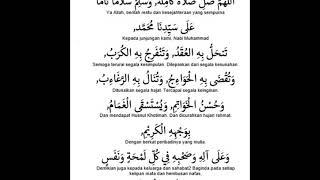 اللهم صل صلاة كاملة، وسلم سلاما تاما
Ya Allah, berilah restu dan kesejahteraan yang sempurna
عَلَى سَيِّدِنَا مُحَمَّد،
Kepada junjungan kami, Nabi Muhammad
تَنْحَلُّ بِهِ الْعُقَدُ، وَتَنْفَرِجُ بِهِ الْكُرَبُ،
Semoga terurai segala kesimpulan. Dilepaskan dari segala kesusahan
وَتُقْضَى بِهِ الْحَوَائِجُ، وَتُنَالُ بِهِ الرَّغَائِبُ،
Ditunaikan segala hajat. Tercapai segala keinginan.
وَحُسْنُ الْخَوَاتِمِ، وَيُسْتَسْقَى الْغَمَامُ،
Dan mendapat Husnul Khotimah. Dan dicurahkan hujan rahmat.
بِوَجْهِهِ الْكَرِيْمِ،
Dengan berkat peribadinya yang mulia.
وَعَلَى آلِهِ وَصَحْبِهِ فِيْ كُلِّ لَمْحَةٍ وَنَفَسٍ
Demikian juga kepada keluarga dan sahabat2 Baginda pada setiap
kelipan mata dan hembusan nafas,